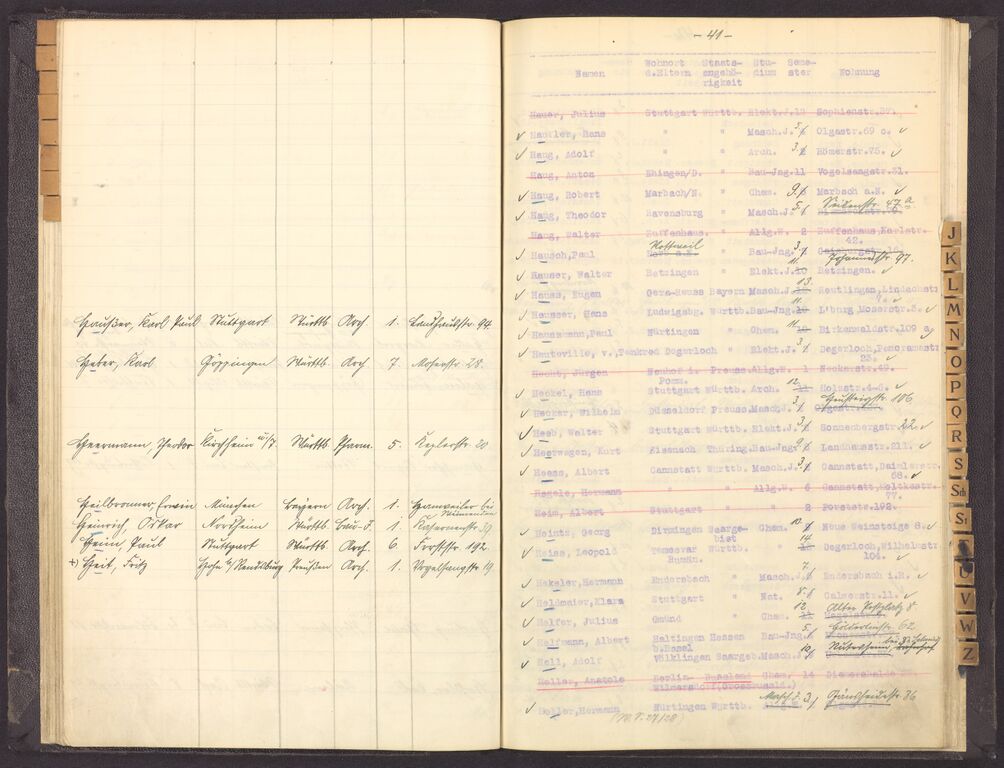 Haußer, Karl Paul Stuttgart Württb Arch. 1. Landhausstr. 94
Heber, Karl Göppingen Württb. Arch 7. Moserstr. 28.
Heermann, Theodor Kirchheim u/T Württb. Pharm. 5. Keplerstr. 20
Heilbronner, Erwin München Bayern Arch. 1. Hanweiler bei
Winnenden
Heinrich, Oskar Nordheim Württb. Bau-I. 1. Kasernenstr. 39
Heim, Paul Stuttgart Württb. Arch. 6. Forststr. 192.
+) Heit, Fritz Hohn b/Rendsburg Preußen Arch. 1. Vogelsangstr. 19.
- 41 -
Wohnort Staats- Stu- Seme-
Namen d.Eltern angehö- dium ster Wohnung
rigkeit
Hauer, Julius Stuttgart Württb. Elekt.J.12 Sophienstr.37.
✓ Haufler, Hans " " Masch.J. 5. Olgastr.69 c. ✓
✓ Haug, Adolf " " Arch. 3. Römerstr.75. ✓
Haug, Anton Ehingen/D. " Bau-Jng.11 Vogelsangstr.31.
✓ Haug, Robert Marbach/N. " Chem. 9. Marbach a.N. ✓
✓ Haug, Theodor Ravensburg " Masch.J. 5. Seidenstr. 47 a
Haug, Walter Zuffenhaus. " Allg.W. 2 Zuffenhausen,Karlstr.
42.
✓ Hausch,Paul Rottweil " Bau-Jng. 3. Johannesstr. 97.
✓ Hauser, Walter Betzingen " Elekt.J. 11. Betzingen. ✓
✓ Hauss, Eugen Gera-Reuss Bayern Masch.J. 13. Reutlingen, Lindachstr
✓ Hausser, Hans Ludwigsbg. Württb.Bau-Jng. 11. L'burg Moserstr.3. ✓
✓ Hausmann,Paul Nürtingen " Chem. 11. Birkenwaldstr.109 a ✓
✓ Hauteville, v.,Tankred Degerloch " Elekt.J. 3. Degerloch,Panoramastr
23. ✓
Hecht, Jürgen Neuhof i. Preuss.Allg.W. 1 Neckarstr.49.
Pomm.
✓ Heckel, Hans Stuttgart Württb. Arch. 12. Holzstr.4-6. ✓
✓ Hecker, Wilhelm Düsseldorf Preuss.Masch.J. 3. Heusteigstr. 106
✓ Heeb, Walter Stuttgart Württb. Elekt.J. 3. Sonnenbergstr.22. ✓
✓ Heerwagen, Kurt Eisenach Thüring.Bau-Jng. 9. Landhausstr.211. ✓
✓ Heess, Albert Cannstatt Württb. Masch.J. 3. Cannstatt,Daimlerstr.
68. ✓
Hegele, Hermann " " Allg.W. 6 Cannstatt,Moltkestr.
77.
Heim, Albert Stuttgart " " 2 Forststr.192.
✓ Heintz, Georg Dirmingen Saarge- Chem. 10. Neue Weinsteige 8. ✓
biet
✓ Heiss, Leopold Temesvar Württb. " 14. Degerloch,Wilhelmstr.
Rumän. 104. ✓
✓ Hekeler,Hermann Endersbach " Masch.J. 7. Endersbach i.R. ✓
✓ Heldmaier,Klara Stuttgart " Nat. 8. Calwerstr.11. ✓
✓ Helfer, Julius Gmünd " Chem. 12. Alter Postplatz 8.
✓ Helfmann, Albert Haltingen Hessen Bau-Jng. 5. Hölderlinstr. 62
b.Basel
✓ Hell, Adolf Völklingen Saargeb.Masch.J. 10.
Heller, Anatole Berlin- Russland Chem. 14
Wilmersdorf,(Grossrussld.)
✓ Heller,Hermann Nürtingen Württb. Masch.J. 3. Gänsheidestr. 86
(W.S. 27/28)
J
K
L
M
N
O
P
Q
R
S
Sch
St
U
V
W
Z